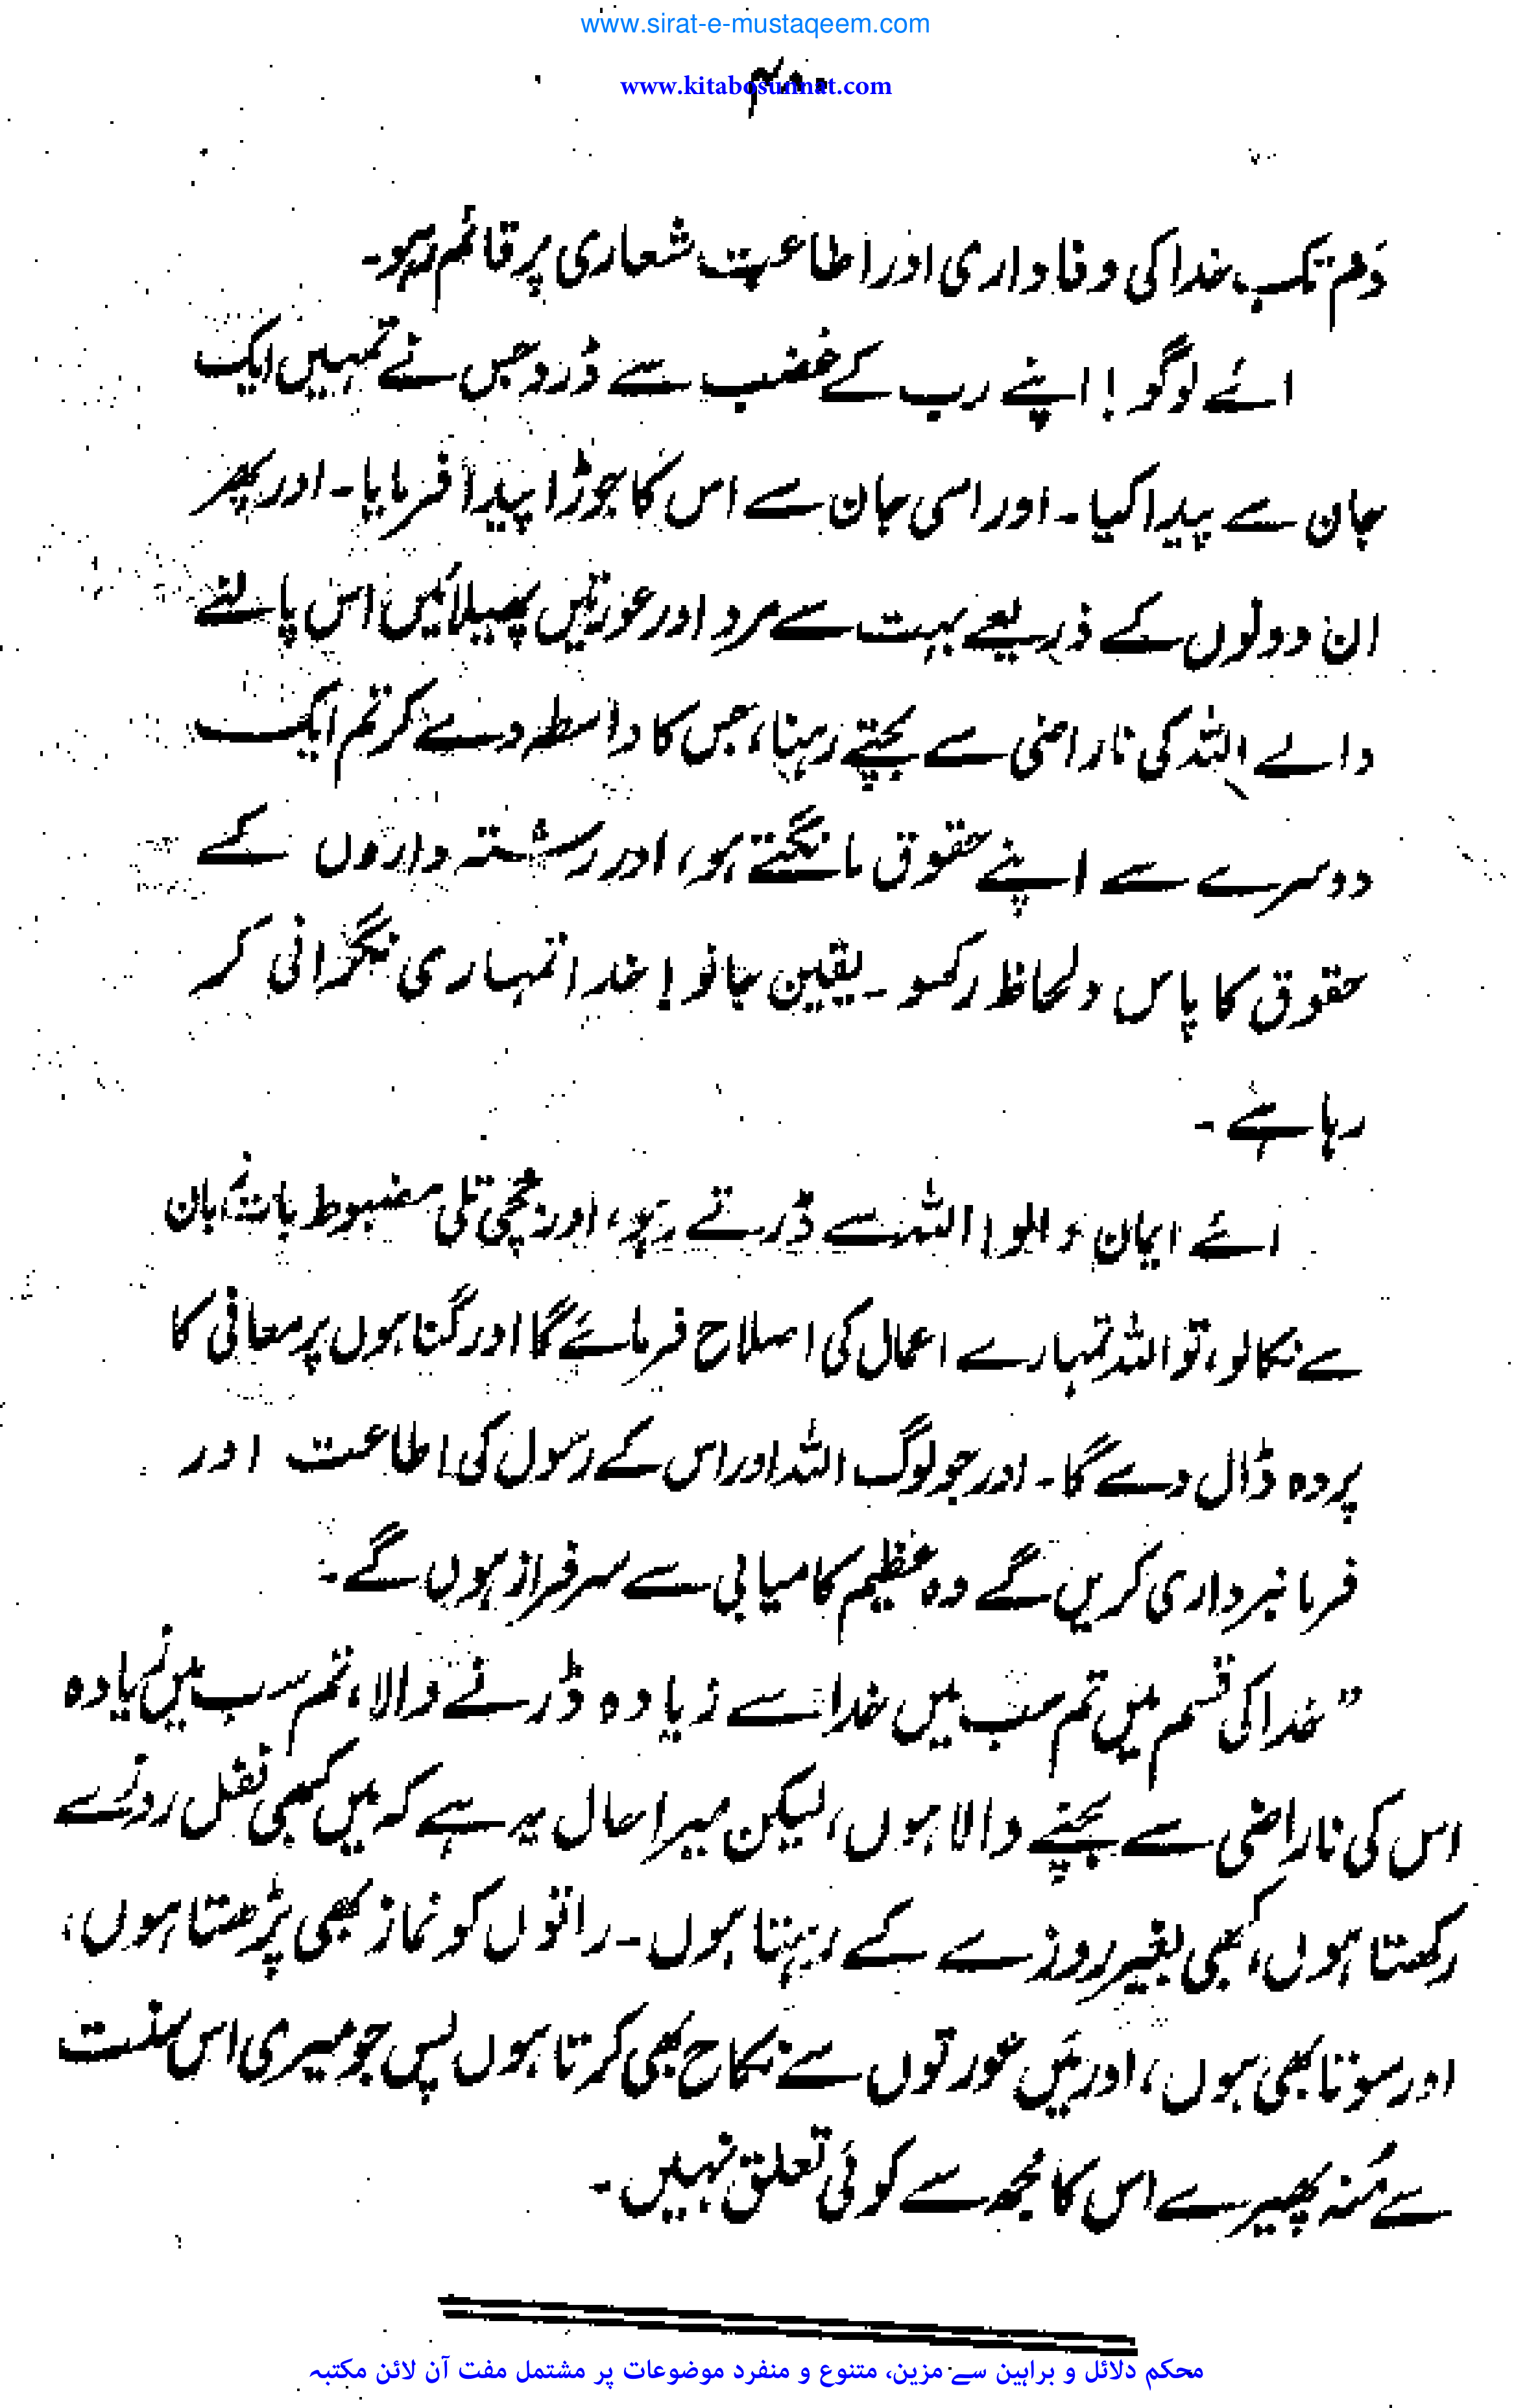 www.sirat-e-mustaqeem.com
www.kitabosunnat.com
۴۰۰
دَم تک خدا کی وفاداری اور اطاعت شعاری پر قائم رہو۔
ائے لوگو! اپنے رب کے غضب سے ڈرو جس نے تمہیں ایک
جان سے پیدا کیا۔ اور اسی جان سے اس کا جوڑا پیدا فرمایا۔ اور پھر
ان دونوں کے ذریعے بہت سے مرد اور عورتیں پھیلائیں اس پالنے
والے اللہ کی ناراضی سے بچتے رہنا، جس کا واسطہ دے کر تم ایک
دوسرے سے اپنے حقوق مانگتے ہو، اور رشتہ داروں کے
حقوق کا پاس ولحاظ رکھو۔ یقین جانو! خدا تمہاری نگرانی کر
رہا ہے۔
ائے ایمان والو! اللہ سے ڈرتے رہو، اور جچی تلی مضبوط بات زبان
سے نکالو، تو اللہ تمہارے اعمال کی اصلاح فرمائے گا اور گناہوں پر معافی کا
پردہ ڈال دے گا۔ اور جو لوگ اللہ اور اس کے رسول کی اطاعت اور
فرمانبرداری کریں گے وہ عظیم کامیابی سے سرفراز ہوں گے۔
"خدا کی قسم میں تم سب میں خدا سے زیادہ ڈرنے والا، تم سب میں زیادہ
اس کی ناراضی سے بچنے والا ہوں، لیکن میرا حال یہ ہے کہ میں کبھی نفل روزے
رکھتا ہوں، کبھی بغیر روزے کے رہتا ہوں۔ راتوں کو نماز بھی پڑھتا ہوں،
اور سوتا بھی ہوں، اور میَں عورتوں سے نکاح بھی کرتا ہوں پس جو میری اس سنت
سے مُنہ پھیرے اس کا مجھ سے کوئی تعلق نہیں۔
محکم دلائل و براہین سے مزین، متنوع و منفرد موضوعات پر مشتمل مفت آن لائن مکتبہ